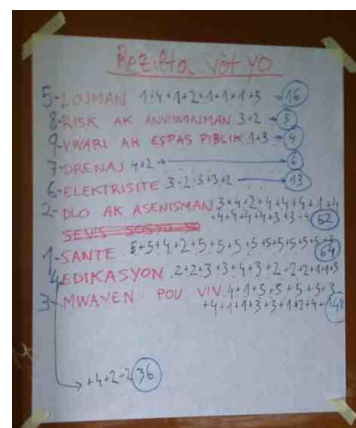 Rezilta vòt yo
5-LOJMAN 1+4+1+2+1+1+1+5 → 16
8-RISK AK ANVIWONMAN 3+2 → 5
9-VWARI AK ESPAS PIBLIK 1+3 → 4
7-DRENAJ 4+2 → 6
6-ELEKTRISITE 3+2+3+3+2 → 13
2-DLO AK ASENISMAN 3+4+2+4+4+4+1+4
+4+4+4+4+3+3+4 52
SEVIS SOSYO
1-SANTE 5+5+4+2+5+5+5+5+5+5+5+5+5+3
64
4 EDIKASYON 2+2+3+3+4+3+2+2+2+1+1+3
3-MWAYEN POU VIV 4+1+5+5+5+5+5+3
+4+1+1+3+3+1+2+4+1 48
→ +4+2+2 36